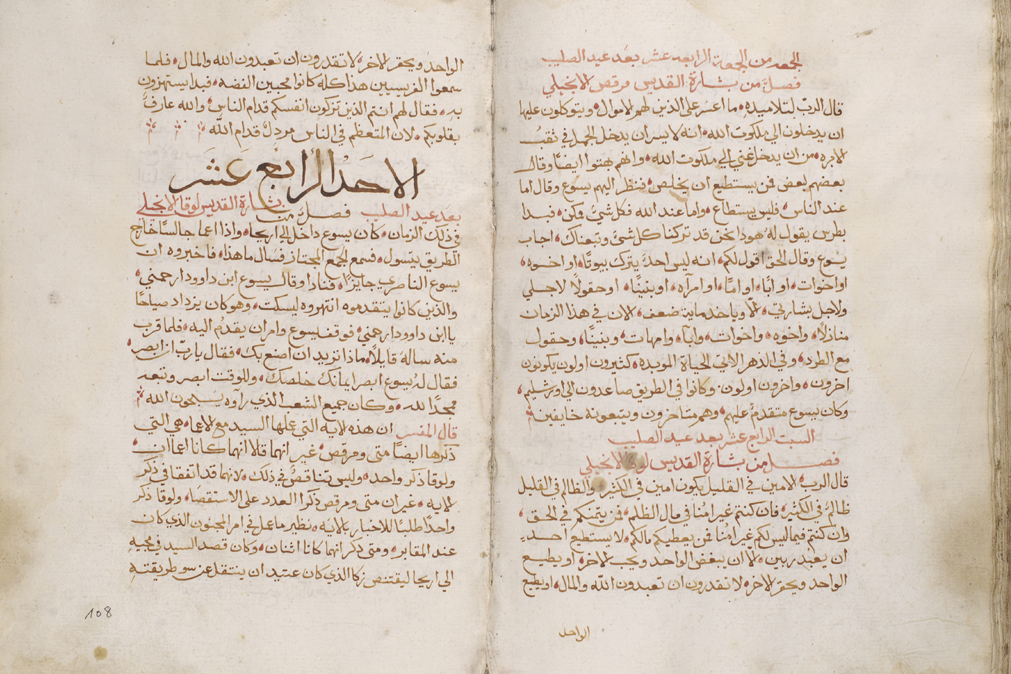 الجمعه من الجمعة الرابعه عشر بعد عيد الصليب
فصل من بشارة القديس مرقص الانجيلي
قال الرب لتلاميذه ما اعسر على الذين لهم لاموال ويتوكلون عليها
ان يدخلون الي ملكوت الله انه لايسر ان يدخل الجمل في ثقب
لابره من ان يدخل غني الي ملكوت الله وانهم بهتوا ايضا وقال
بعضهم لبعض فمن يستطيع ان يخلص فنظر اليهم يسوع وقال اما
عند الناس فليس يستطاع واما عند الله فكل شي يمكن فبدا
بطرس يقول له هوذا نحن قد تركنا كل شي وتبعناك اجاب
يسوع وقال الحق اقول لكم انه ليس احد يترك بيوتا او اخوه
او اخوات او ابا او اما او امراه او بنينا او حقولا لاجلي
ولاجل بشارتي لا وياخد ماية ضعف لان في هذا الزمان
منازلا واخوه واخوات وابا وامهات وبنينا وحقول
مع الطرد وفي الدهر الاتي الحياة الموبده كثيرون اولون يكونون
اخرون واخرون اولون وكانوا في الطريق صاعدون الي اورشليم
وكان يسوع متقدم عليهم وهم متاخرون ويتبعونه خايفين
السبت الرابع عشر بعد عيد الصليب
فصل من بشارة القديس لوقا لانجيلي
قال الرب لامين في القليل يكون امين في الكثير والظالم في القليل
ظالم في الكثير فان كنتم غير امنا في مال الظلم فمن يتمنكم في الحق
وان كنتم فيما ليس لكم غير امنا فمن يعطيكم مالكم لا يستطيع احد
ان يعبد ربين لا ان يبغض الواحد ويحب لاخر او يطيع
الواحد ويحقر لاخر لا تقدرون ان تعبدون الله والمال او يطيع
الواحد
الواحد ويحقر الاخر لا تقدرون ان تعبدون الله والمال فلما
سمعوا الفريسيين هذا كله كانوا محبين الفضه فبدا يستهزون
به فقال لهم انتم الذين تزكون انفسكم قدام الناس والله عارف
بقلوبكم لان المتعظم في الناس مردل قدام الله
الاحد الرابع عشر
بعد عيد الصليب فصل من بشارة القديس لوقا لانجيلي
في ذلك الزمان كان يسوع داخل الي اريحا واذا اعما جالسا خارج
الطريق يتسول فسمع لجمع المجتاز فسال ما هذا فاخبروه ان
يسوع الناصري جايزا فنادا وقال يسوع ابن داوود ارحمني
والذين كانوا يتقدموه انتهروه ليسكت وهو كان يزداد صياحا
يا ابن داوود ارحمني فوقف يسوع وامر ان يقدم اليه فلما قرب
منه ساله قايلا ماذا تريد ان اصنع بك فقال يا رب ان ابصر
فقال له يسوع ابصر ايمانك خلصك وللوقت ابصر وتبعه
ممجدا لله وكان جميع الشعب الذي راوه يسبحون الله
قال المفسر ان هذه لايه التي عملها السيد مع لاعما هي التي
ذكرها ايضا متي ومرقص غير انهما قالا انهما كانا اعماان
ولوقا ذكر واحد وليس تناقض في ذلك لانهما قد اتفقا في ذكر
لايه غير ان متي ومرقص ذكرا العدد علي الاستقصا ولوقا ذكر
واحدا طلبا للاخبار بالايه نظير ما عمل في امر المجنون الذي كان
عند المقابر ومتي ذكر انهما كانا اثنان وكان قصد السيد في مجيه
الي اريحا ليقتنص زكا الذي كان عتيد ان ينتقل عن سو طريقته
108